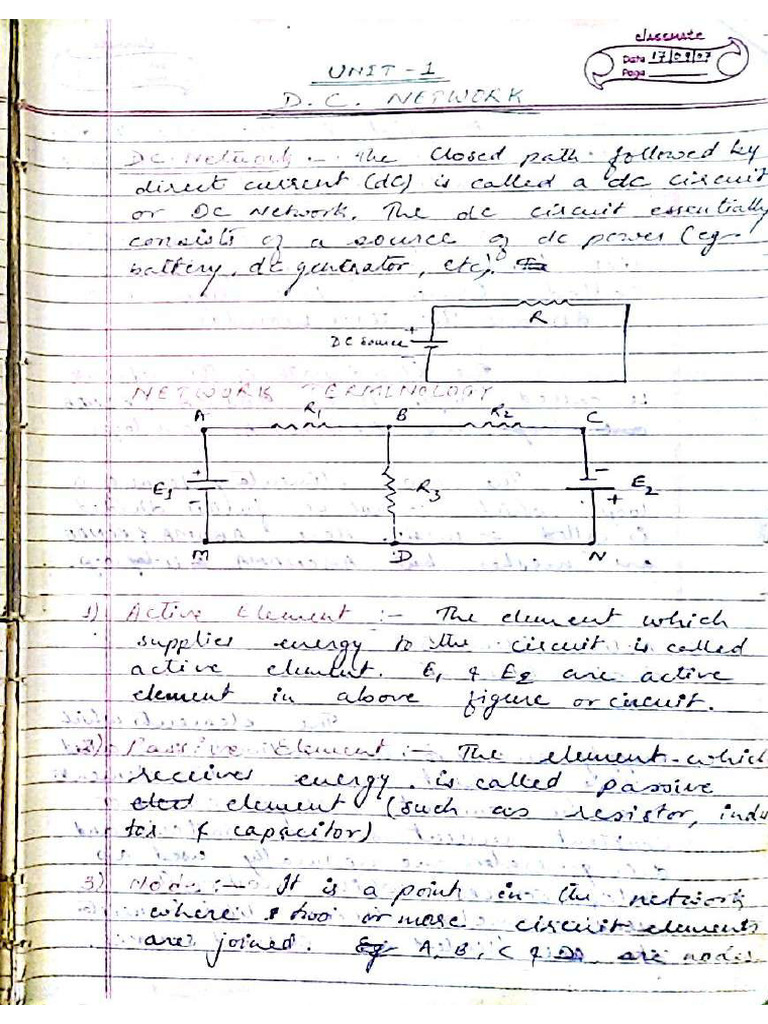 classmate
Date 17/09/07
Page
UNIT - 1
D. C. NETWORK
DC Network :- The closed path followed by
direct current (dc) is called a dc circuit
or DC Network. The dc circuit essentially
consists of a source of dc power (eg-
battery, dc generator, etc).
R
+
DC Source
-
NETWORK TERMINOLOGY
A R1 B R2 C
E1 + - R3 - + E2
M D N
1) Active Element :- The element which
supplies energy to the circuit is called
active element. E1 & E2 are active
element in above figure or circuit.
2) Passive Element :- The element which
receives energy is called passive
element (such as resistor, induc
tor & capacitor)
3) Node :- It is a point in the network
where two or more circuit elements
are joined. Eg A, B, C & D are nodes